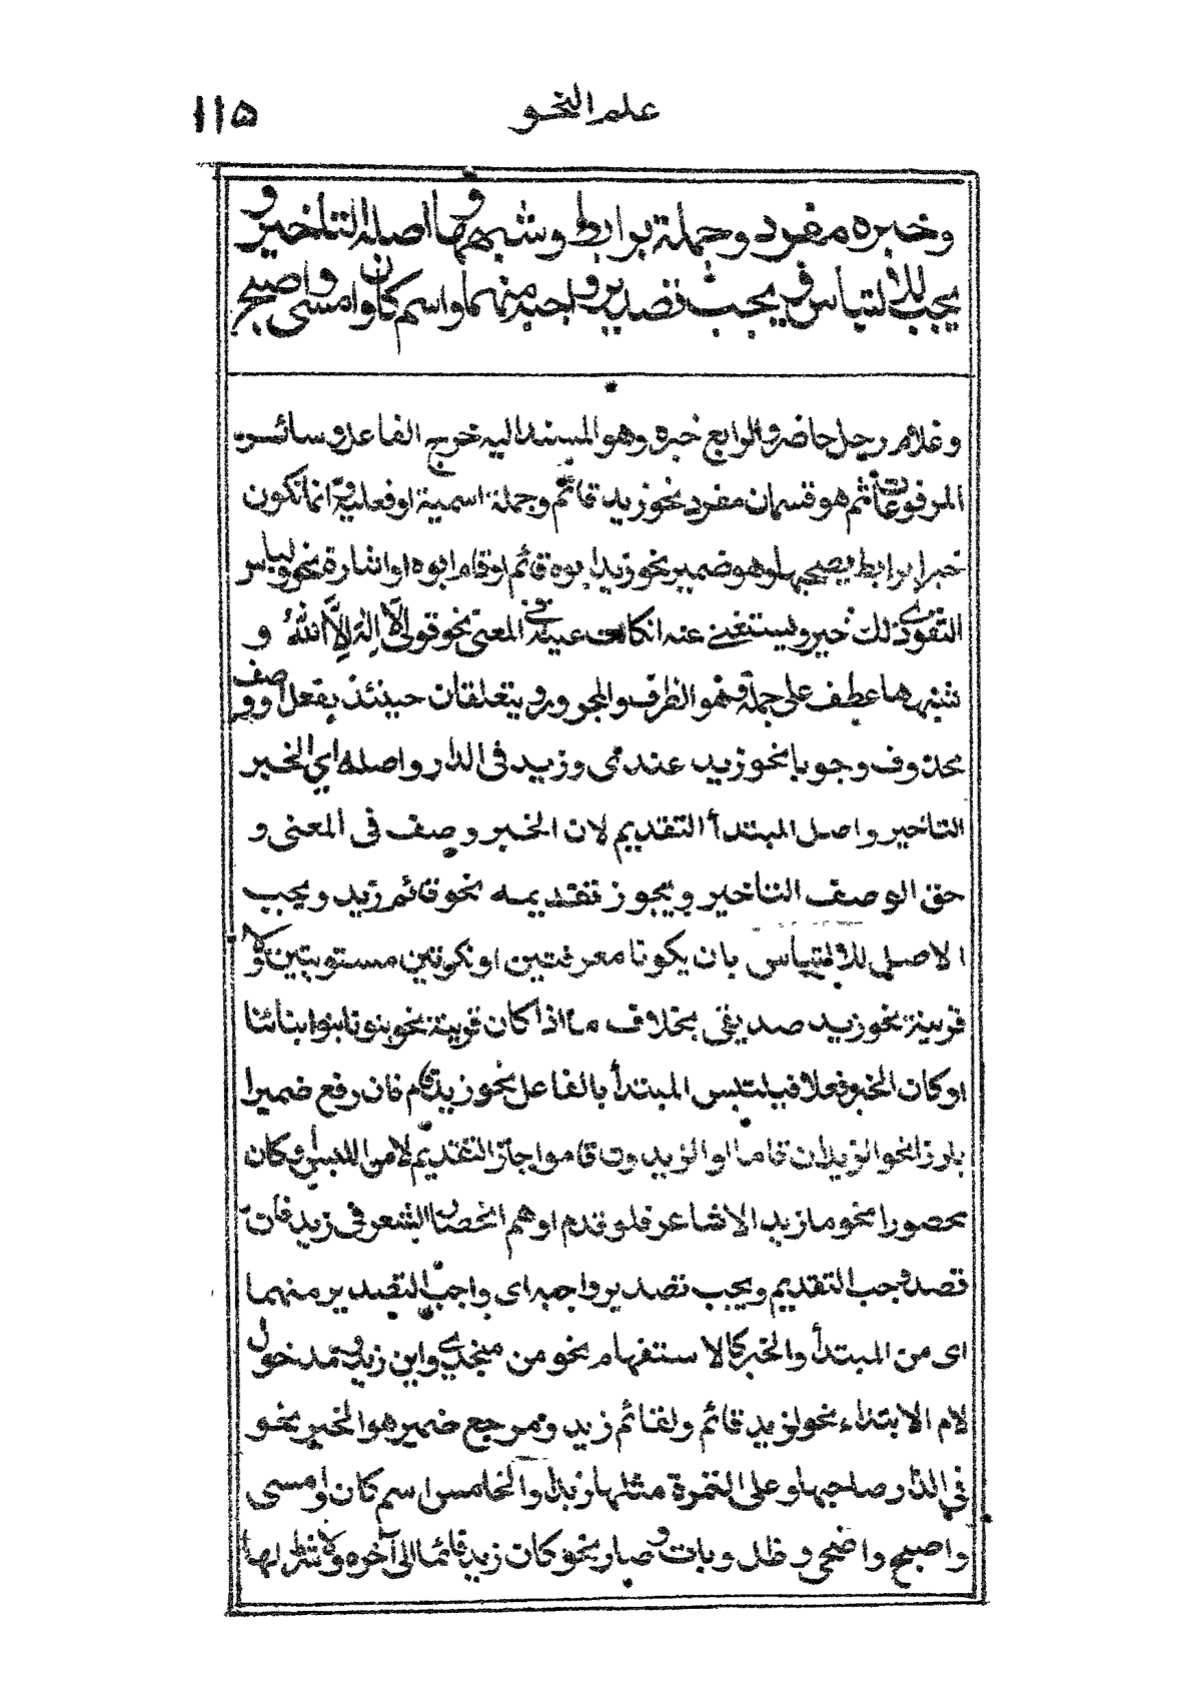 علم النحو ١١٥
وخبره مفرد وجملة برابط وشبهها واصله التاخير و
يجب للالتباس في يجب تصدير واجبه منهما واسم كان وامسى واصبح
وغلام رجل حاضر والرابع خبره وهو المسند اليه خرج الفاعل وسائر
المرفوعات ثم هو قسمان مفرد نحو زيد قائم وجملة اسمية او فعلية وانما تكون
خبرا برابط يصحبها وهو ضمير نحو زيد ابوه قائم او قام ابوه او اشارة نحو ولباس
التقوى ذلك خير ويستغنى عنه ان كانت عينه في المعنى نحو قولي لَا اِلٰهَ اِلَّا اللّٰهُ و
شبهها عطف على جملة وهو الظرف والمجرور ويتعلقان حينئذ بفعل او وصف
محذوف وجوبا نحو زيد عندي وزيد فى الدار واصله اي الخبر
التاخير واصل المبتدأ التقديم لان الخبر وصف فى المعنى و
حق الوصف التاخير ويجوز تقديمه نحو قائم زيد ويجب
الاصل للالتباس بان يكونا معرفتين او نكرتين مستويتين ولا
قرينة نحو زيد صديقى بخلاف ما اذا كان قرينة نحو بنونا بنوا ابنائنا
او كان الخبر فعلا فيلتبس المبتدأ بالفاعل نحو زيد قام فان رفع ضميرا
بارزا نحو الزيدان قاما او الزيدون قاموا جاز التقديم لامن اللبس او كان
محصورا نحو ما زيد الا شاعر فلو قدم اوهم انحصار الشعر فى زيد فان
قصد وجب التقديم ويجب تصدير واجبه اى واجب التصدير منهما
اى من المبتدأ والخبر كالاستفهام نحو من منجدي واين زيد ومدخول
لام الابتداء نحو لزيد قائم ولقائم زيد ومرجع ضمير هو الخبر نحو
فى الدار صاحبها وعلى التمرة مثلها زبدا والخامس اسم كان وامسى
واصبح واضحى وظل وبات وصار نحو كان زيد قائما الى آخره ولا شرط لها